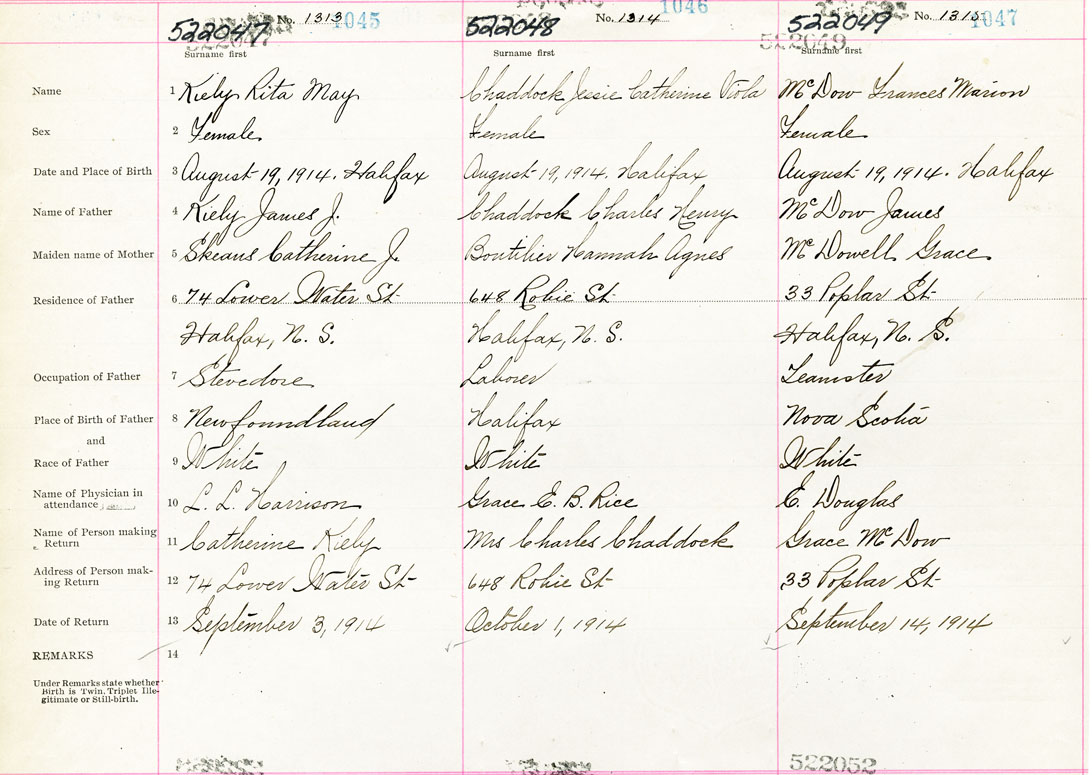 522047 No. 1313 1045 522048 No. 1314 1046 522049 No. 1315 1047
522047 522049
Surname first Surname first Surname first
Name 1 Kiely Rita May Chaddock Jessie Catherine Viola McDow Frances Marion
Sex 2 Female Female Female
Date and Place of Birth 3 August 19, 1914. Halifax August 19, 1914. Halifax August 19, 1914. Halifax
Name of Father 4 Kiely James J. Chaddock Charles Henry McDow James
Maiden name of Mother 5 Skeans Catherine J. Boutilier Hannah Agnes McDowell Grace
Residence of Father 6 74 Lower Water St 648 Robie St 33 Poplar St
Halifax, N. S. Halifax, N. S. Halifax, N. S.
Occupation of Father 7 Stevedore Laborer Teamster
Place of Birth of Father 8 Newfoundland Halifax Nova Scotia
and
Race of Father 9 White White White
Name of Physician in
attendance 10 L. L. Harrison Grace E. B. Rice E. Douglas
Name of Person making
Return 11 Catherine Kiely Mrs Charles Chaddock Grace McDow
Address of Person mak-
ing Return 12 74 Lower Water St 648 Robie St 33 Poplar St
Date of Return 13 September 3, 1914 October 1, 1914 September 14, 1914
REMARKS 14
Under Remarks state whether
Birth is Twin, Triplet Ille-
gitimate or Still-birth.
522052